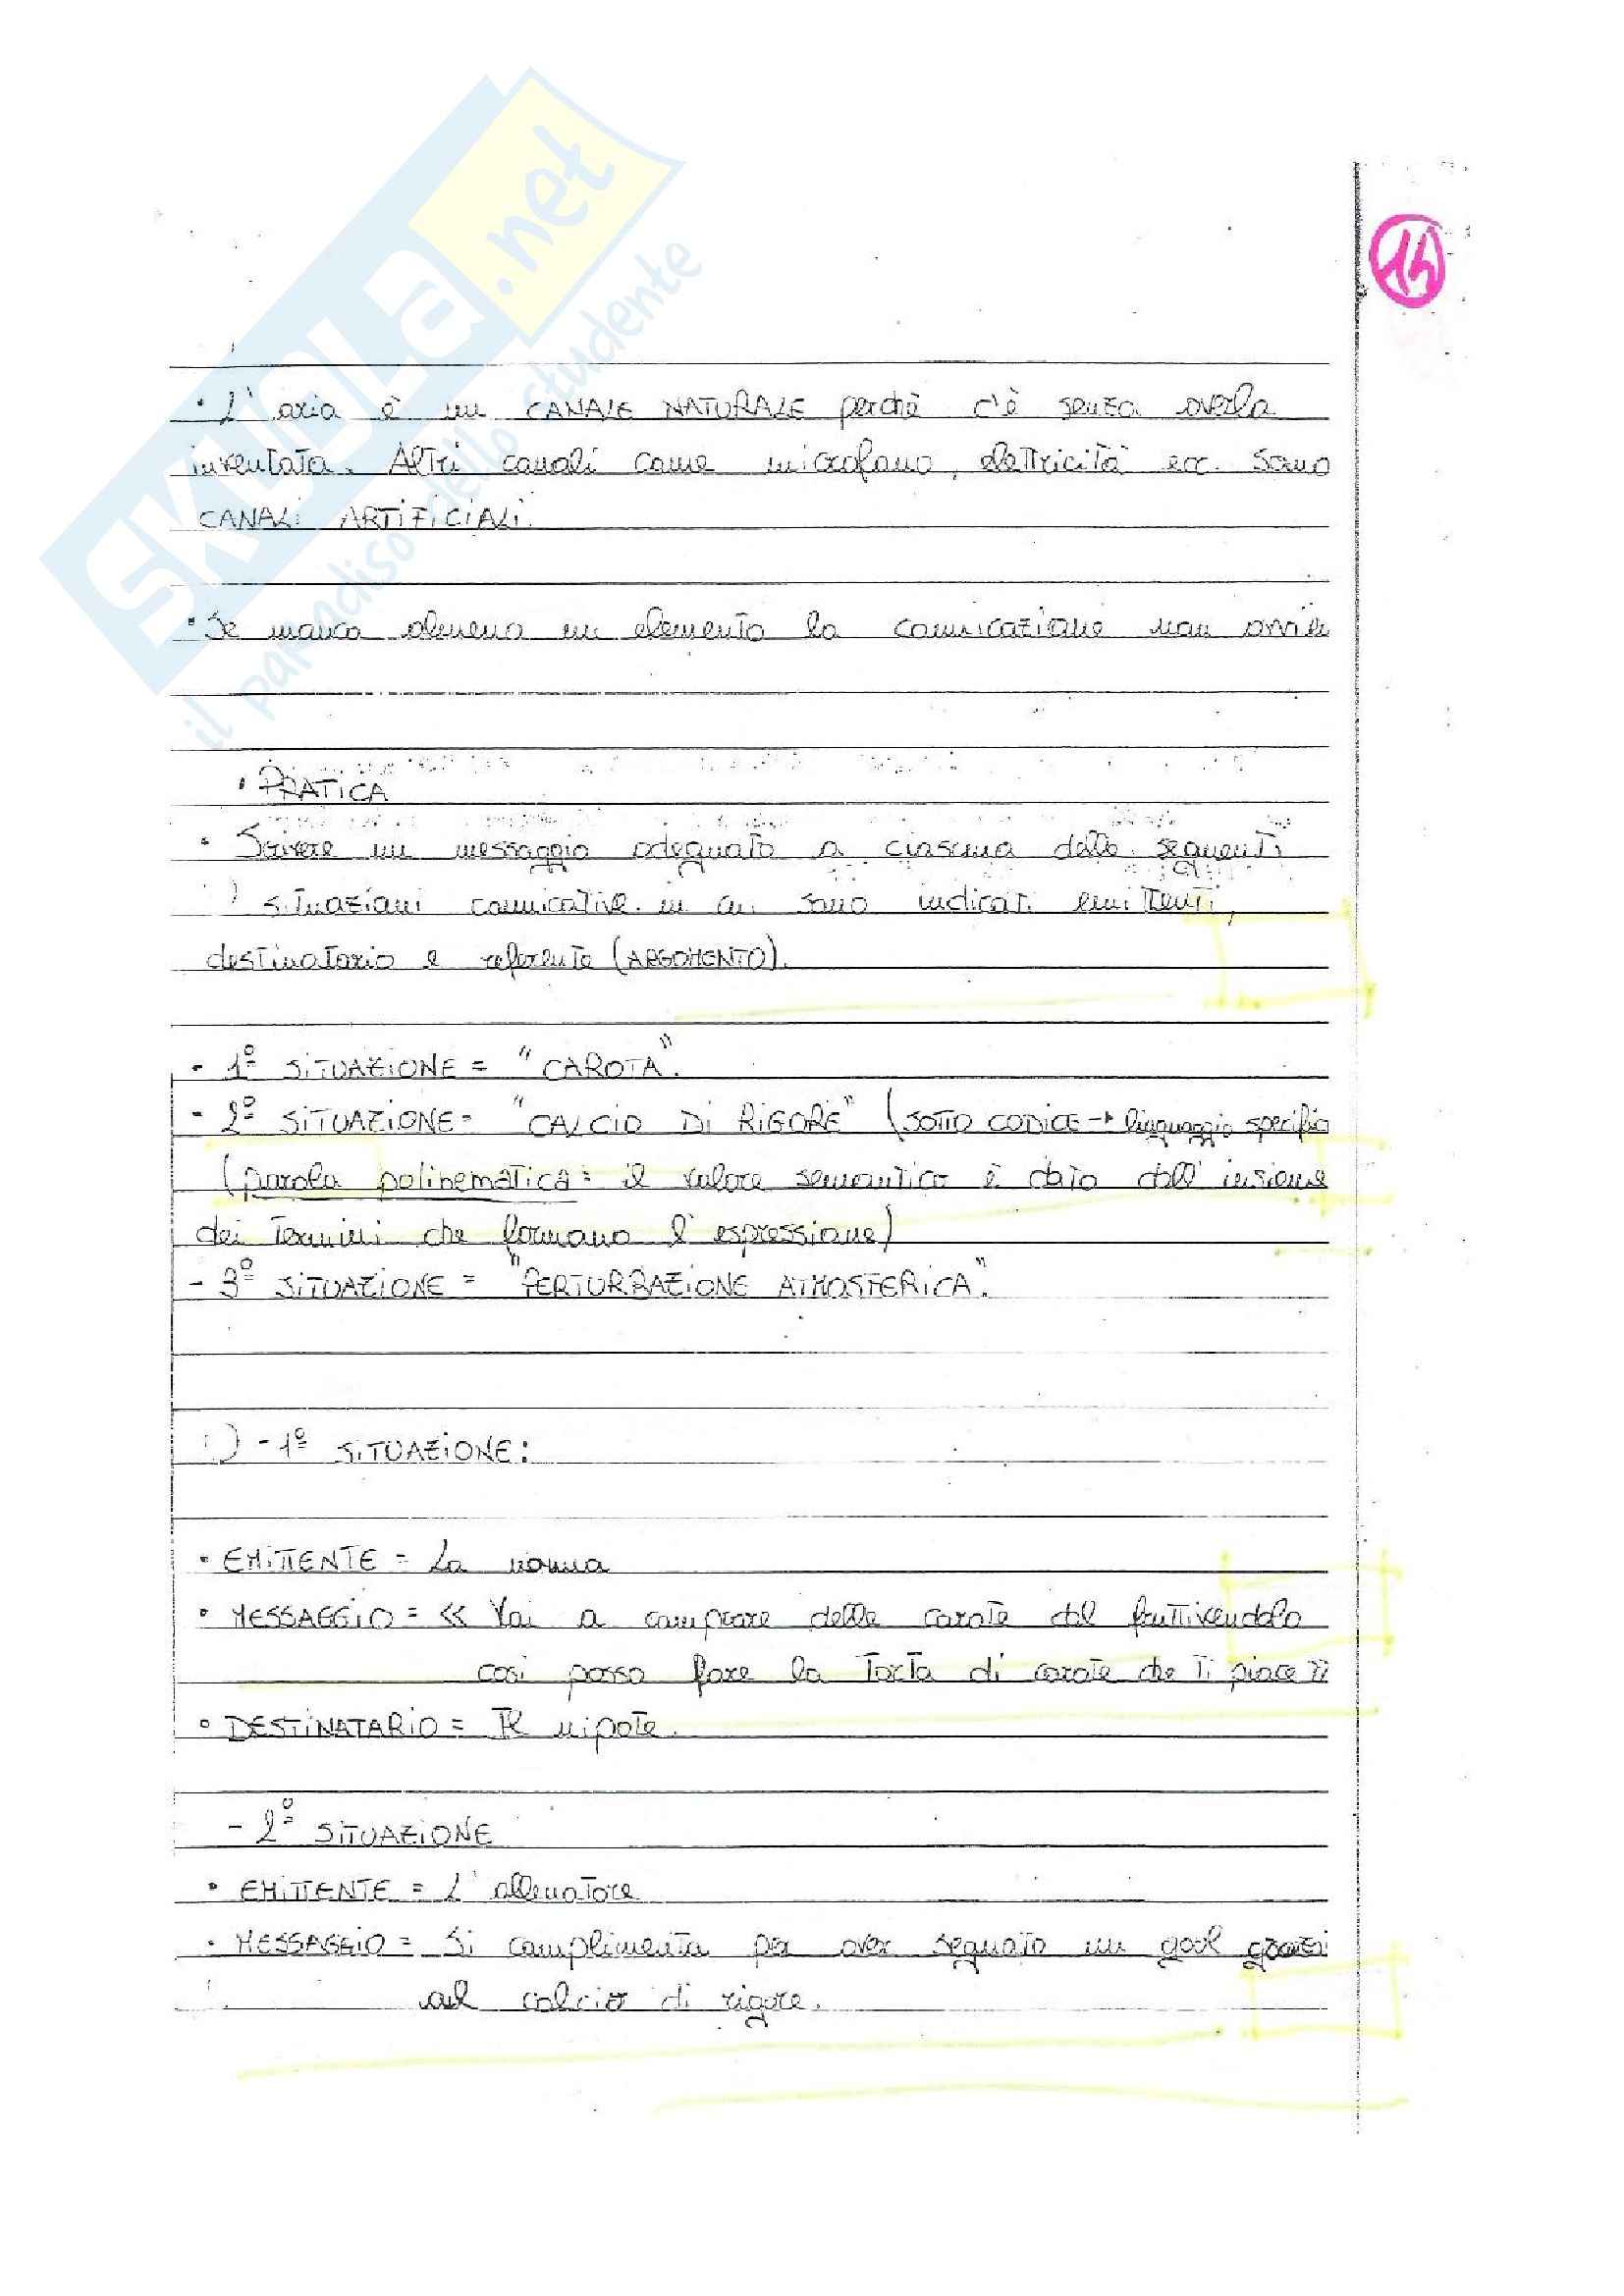 SKUOLA.net
il paradiso dello studente
14
• L'aria è un CANALE NATURALE perchè c'è senza averla
inventata. Altri canali come microfono, elettricità ecc. sono
CANALI ARTIFICIALI.
• Se manca almeno un elemento la comunicazione non avviene
• PRATICA
• Scrivere un messaggio adeguato a ciascuna delle seguenti
situazioni comunicative in cui sono indicati emittenti,
destinatario e referente (ARGOMENTO).
- 1º SITUAZIONE = "CAROTA".
- 2º SITUAZIONE = "CALCIO DI RIGORE" (SOTTO CODICE → linguaggio specifico
(parola polirematica = il valore semantico è dato dall'insieme
dei termini che formano l'espressione)
- 3º SITUAZIONE = "PERTURBAZIONE ATMOSFERICA".
1) - 1º SITUAZIONE:
• EMITTENTE = La nonna
• MESSAGGIO = << Vai a comprare delle carote dal fruttivendolo
così posso fare la torta di carote che ti piace
• DESTINATARIO = Il nipote.
- 2º SITUAZIONE
• EMITTENTE = L'allenatore
• MESSAGGIO = Si complimenta per aver segnato un gool
al calcio di rigore.